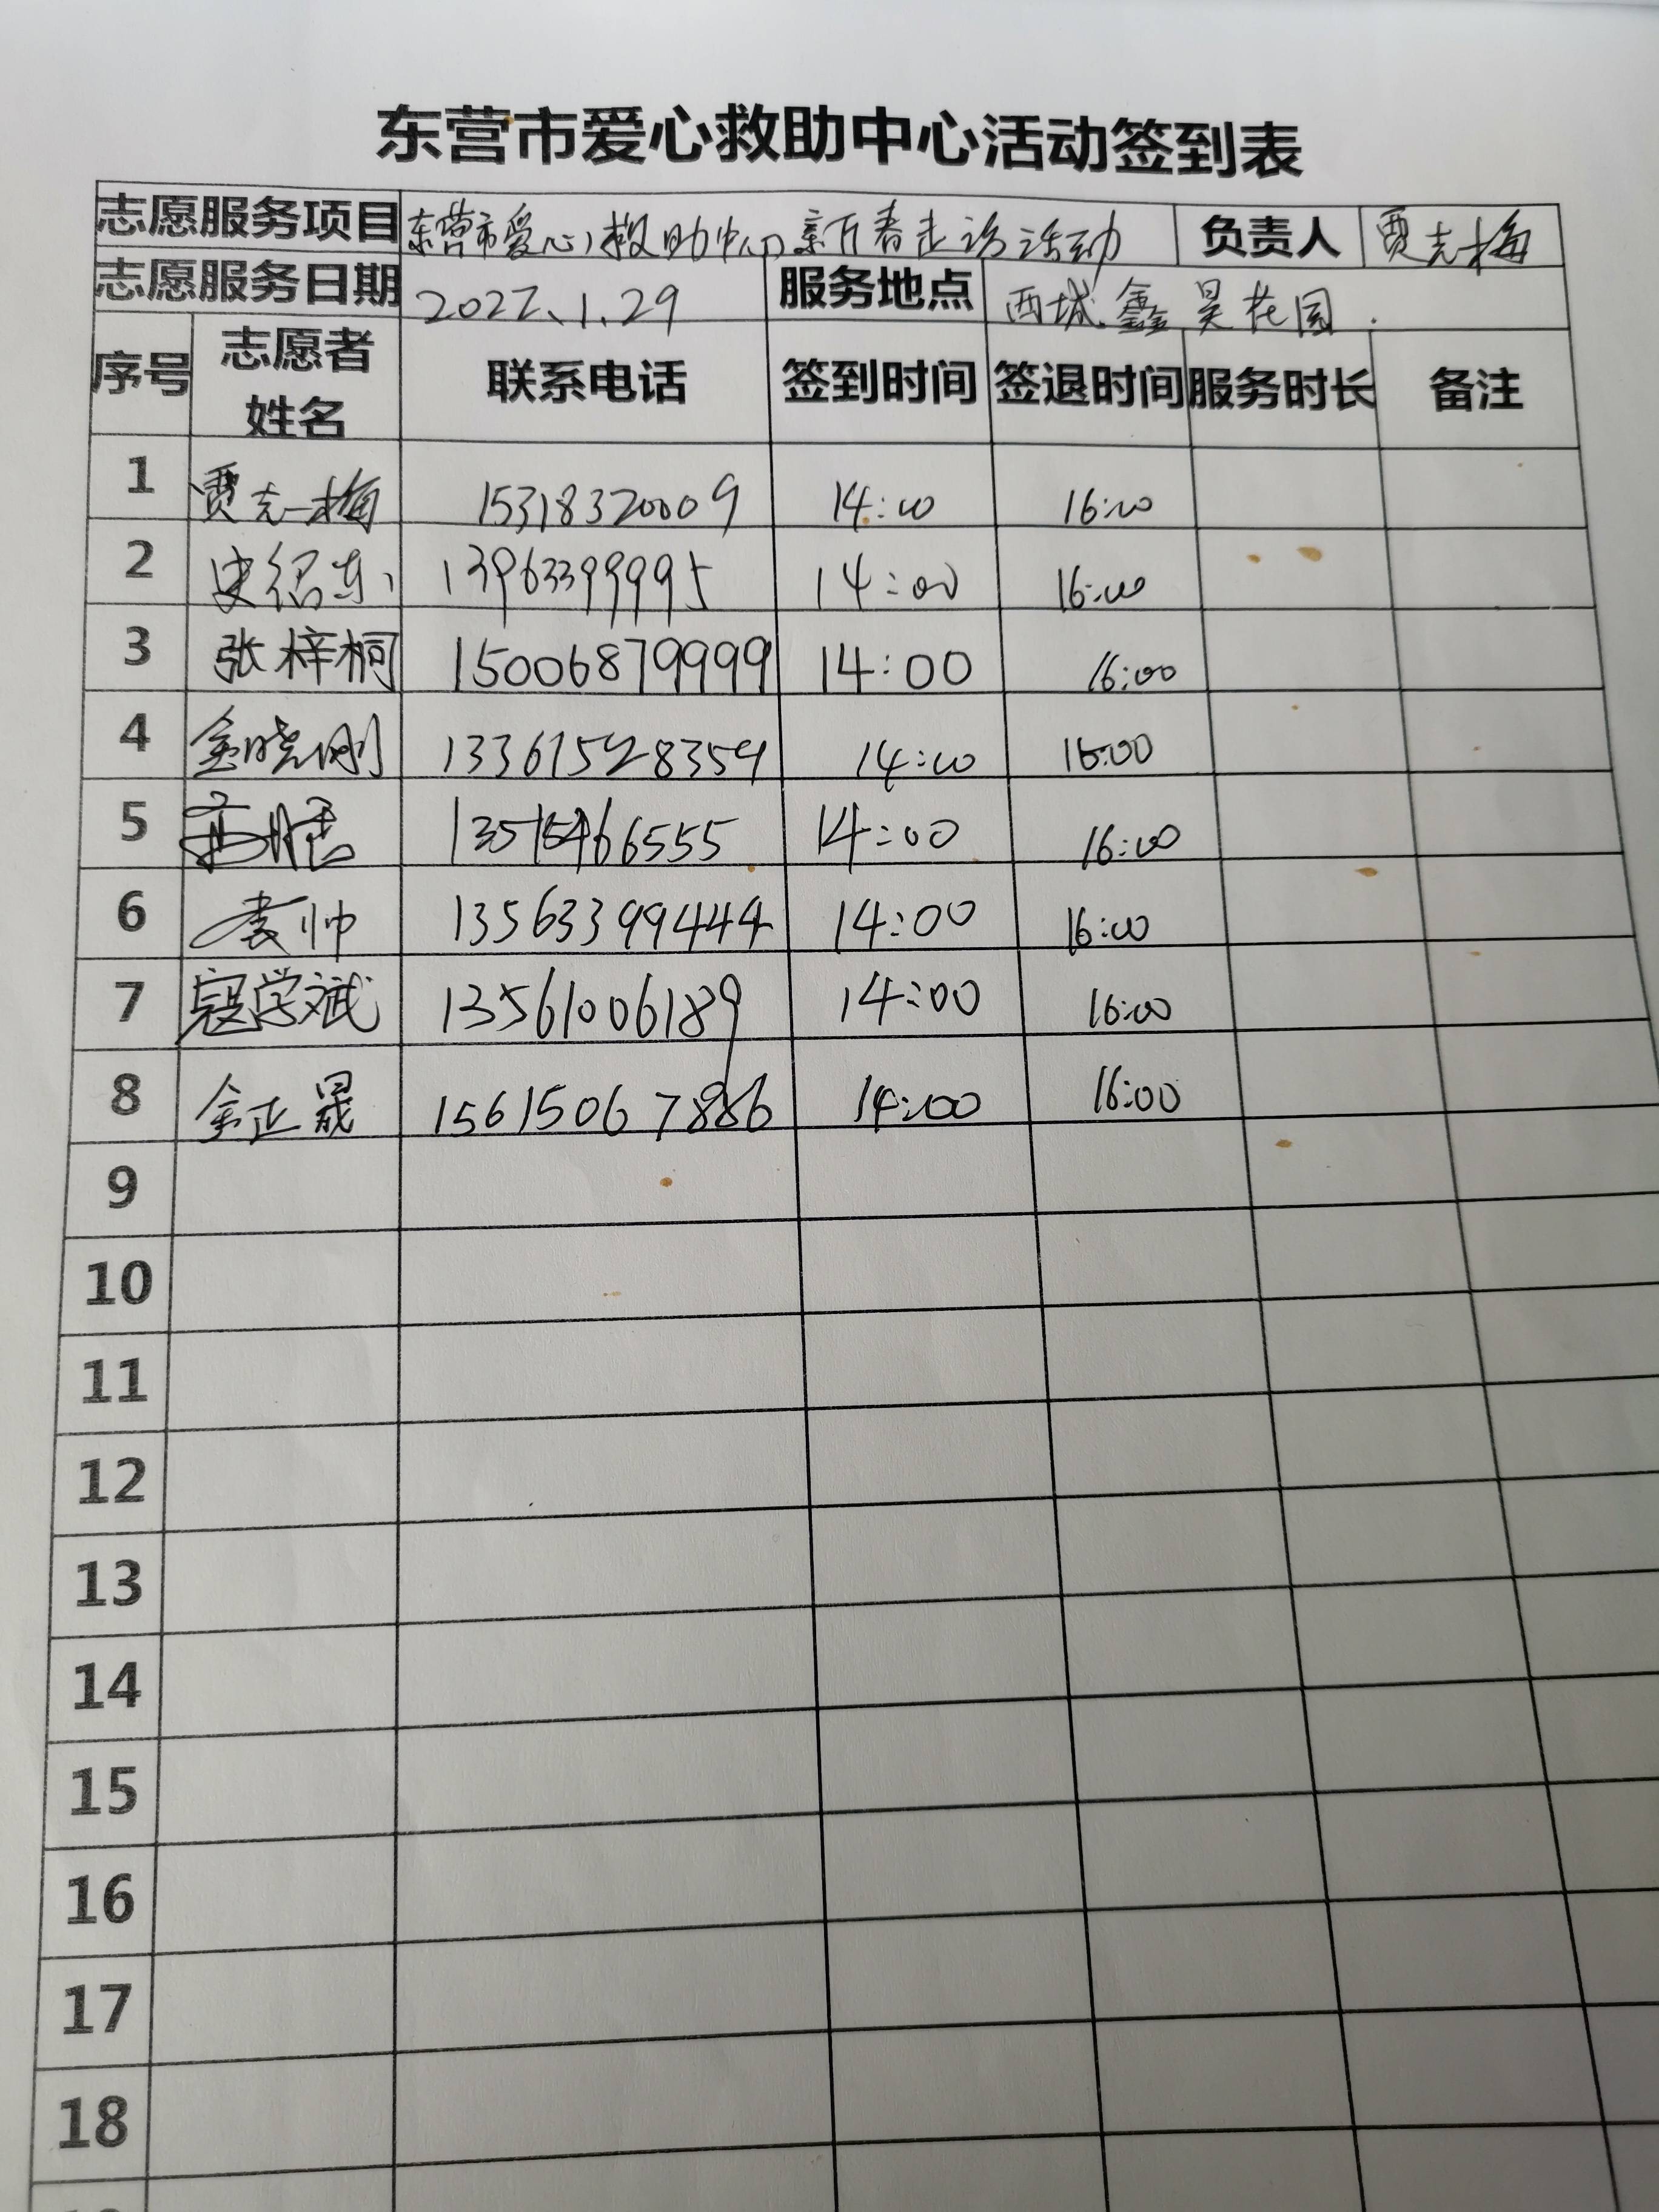 东营市爱心救助中心活动签到表
志愿服务项目 东营市爱心救助中心 新万春走访活动 负责人 贾克梅
志愿服务日期 2022、1.29 服务地点 西城鑫昊花园.
序号 志愿者姓名 联系电话 签到时间 签退时间 服务时长 备注
1 贾克梅 15318320009 14:00 16:00
2 史绍东 13963399995 14:00 16:00
3 张梓桐 15006879999 14:00 16:00
4 金晓刚 13361528359 14:00 16:00
5 14:00 16:00
6 袁帅 13563399444 14:00 16:00
7 寇学斌 13561006189 14:00 16:00
8 金正晟 15615067886 14:00 16:00
9
10
11
12
13
14
15
16
17
18